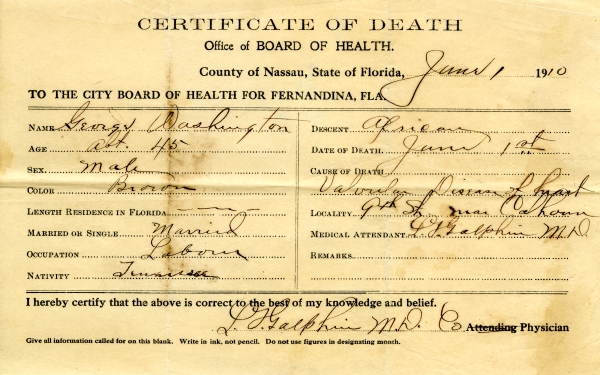 CERTIFICATE OF DEATH
Office of BOARD OF HEALTH.
County of Nassau, State of Florida, June 1 1910
TO THE CITY BOARD OF HEALTH FOR FERNANDINA, FLA.
NAME George Washington
AGE 45
SEX. Male
COLOR Brown
LENGTH RESIDENCE IN FLORIDA —
MARRIED OR SINGLE Married
OCCUPATION Labour
NATIVITY Tennessee
DESCENT African
DATE OF DEATH. June 1st
CAUSE OF DEATH
Valvular Disease of heart
LOCALITY 9th St. near Calhoun
MEDICAL ATTENDANT Galphin M.D
REMARKS
I hereby certify that the above is correct to the best of my knowledge and belief.
Galphin M.D. Co Attending Physician
Give all information called for on this blank. Write in ink, not pencil. Do not use figures in designating month.